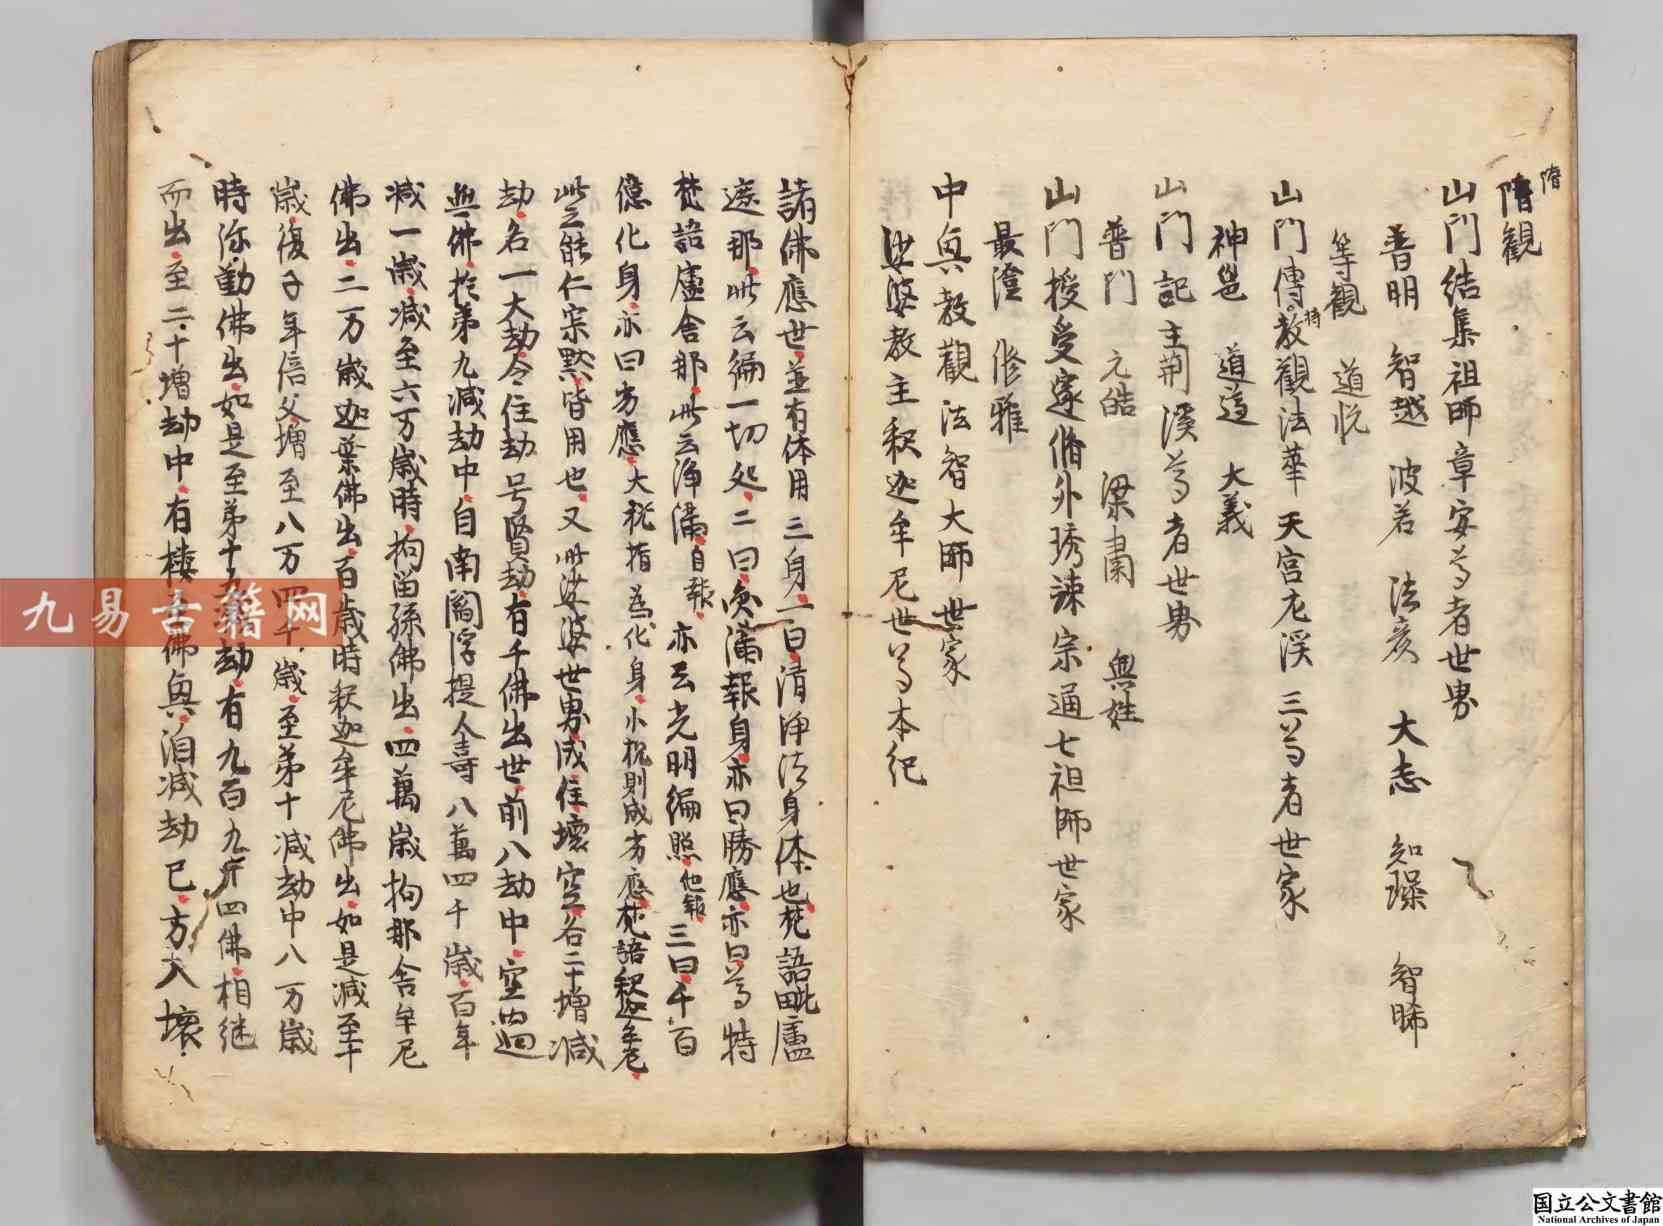 隋観
隋
山門結集祖師章安尊者世男
普明 智越 波若 法彦 大志 知璪 智晞
等観 道悦
山門傳教觀法華天宮左溪三尊者世家
持
神邕 道遵 大義
山門記主荊溪尊者世男
普門 元皓 梁肅 無姓
山門授受邃脩外琇竦宗通七祖師世家
最澄 脩雅
中興教觀法智大師世家
娑婆教主釈迦牟尼世尊本紀
諸佛應世並有体用三身一曰清淨法身体也梵語毗盧
遮那此云徧一切処二曰圓滿報身亦曰勝應亦曰尊特
梵語盧舎那此云淨滿自報亦云光明徧照他報三曰千百
億化身亦曰劣應大秖指為化身小机則成劣應梵語釈迦牟尼
此云能仁寂黙皆用也又此娑婆世男成住壞空各二十増減
劫名一大劫今住劫号賢劫有千佛出世前八劫中空過
無佛於弟九減劫中自南閻浮提人壽八萬四千歳百年
減一歳減至六万歳時拘留孫佛出四萬歳拘那舎牟尼
佛出二万歳迦葉佛出百歳時釈迦牟尼佛出如是減至十
歳復子年倍父増至八万四千歳至弟十減劫中八万歳
時弥勤佛出如是至弟十九劫有九百九十四佛相継
而出至二十増劫中有楼至佛興洎減劫已方大壞
九易古籍网
国立公文書館
National Archives of Japan